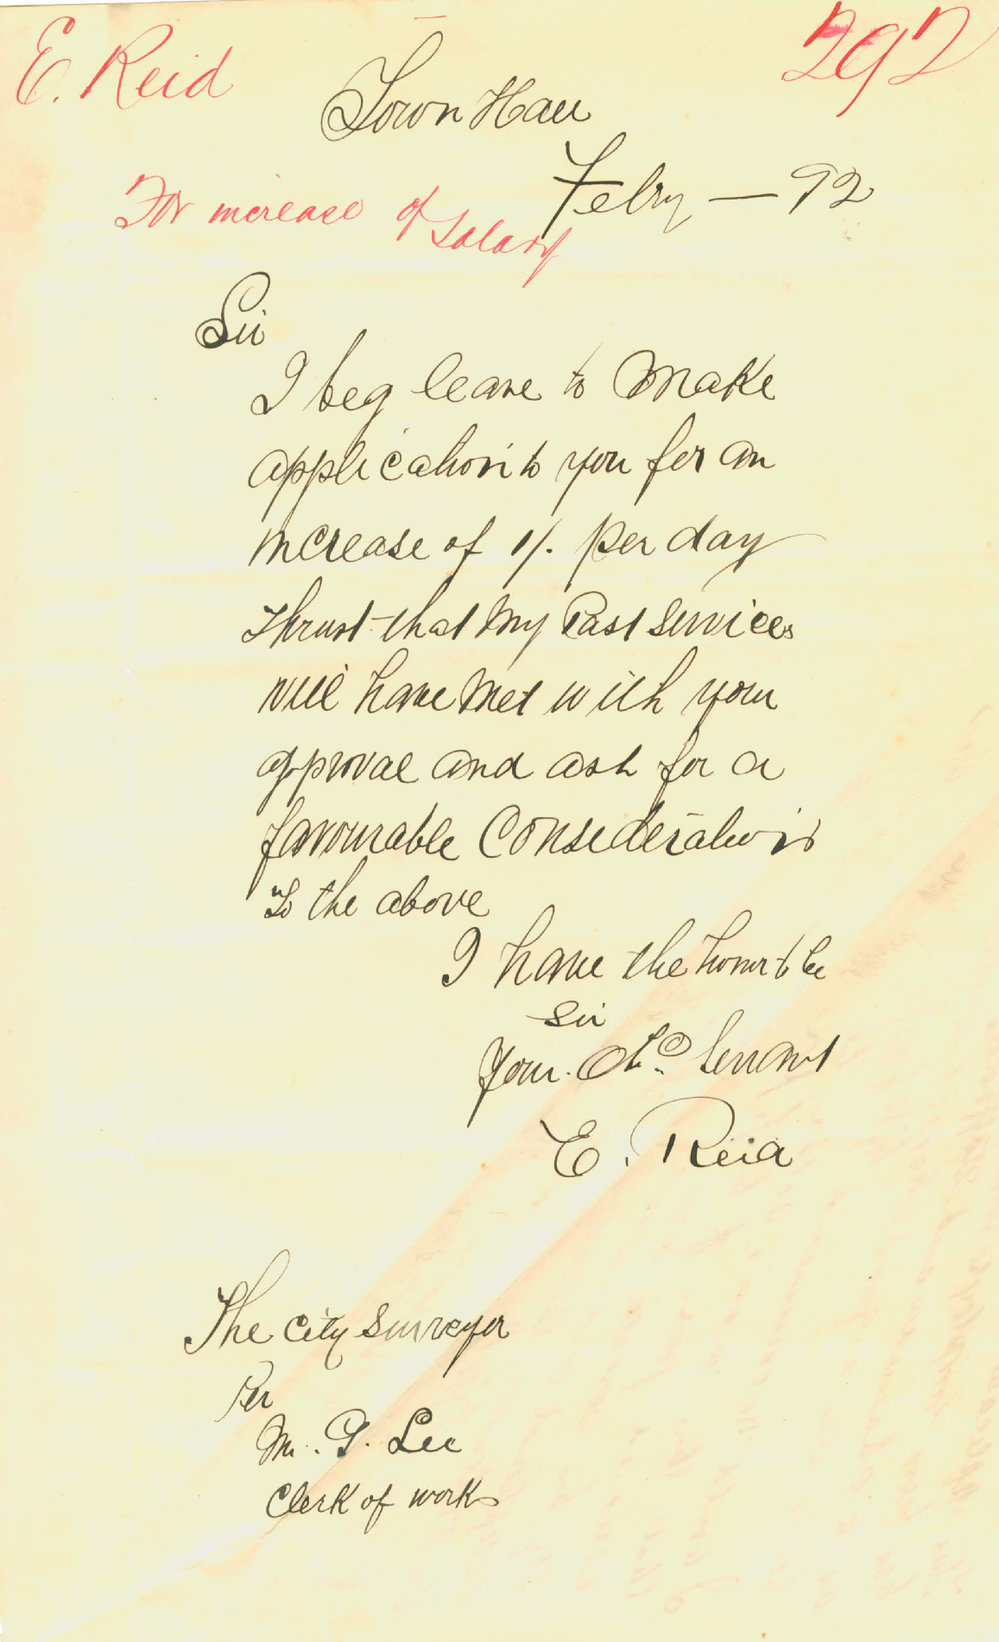 E. Reid
292
Town Hall
Febry — 92
For increase of Salary
Sir
I beg leave to make
application to you for an
increase of 1/. per day
thrust that my Past services
will have met with your
approval and ask for a
favourable Consideration
to the above
I have the honor to be
Sir
Your. Obt. Servant
E. Reid
The City Surveyor
Per
Mr. G. Lee
Clerk of works